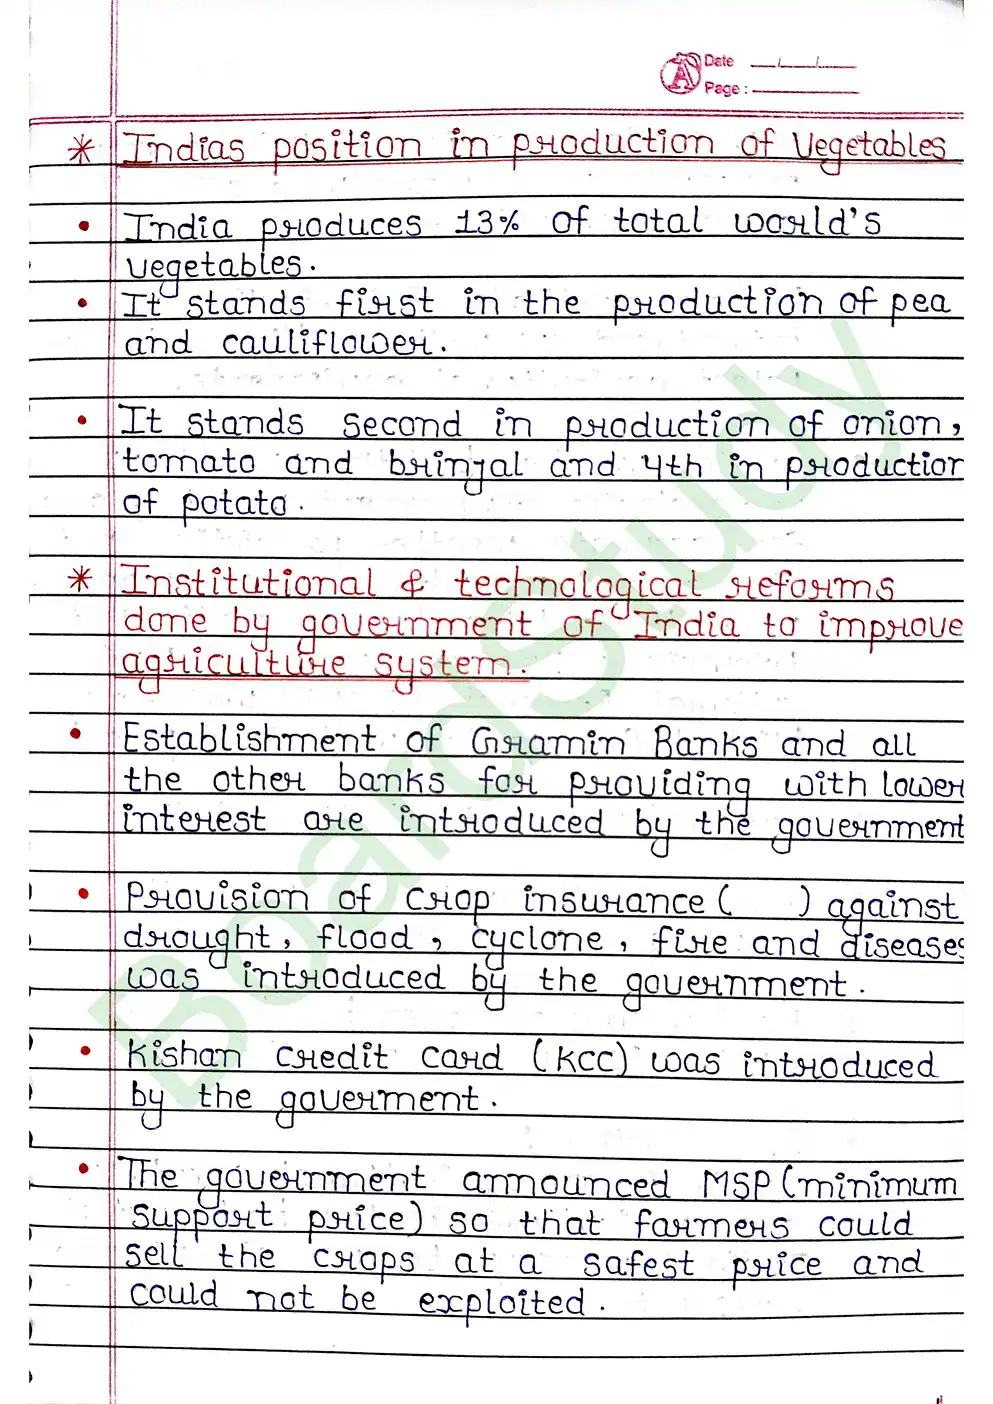 Date
Page :
* Indias position in production of Vegetables
• India produces 13% of total world's
vegetables.
• It stands first in the production of pea
and cauliflower.
• It stands second in production of onion,
tomato and brinjal and 4th in production
of potato.
* Institutional & technological reforms
done by government of India to improve
agriculture system.
• Establishment of Gramin Banks and all
the other banks for providing with lower
interest are introduced by the government
• Provision of crop insurance ( ) against
drought, flood, cyclone, fire and diseases
was introduced by the government.
• Kishan credit card (KCC) was introduced
by the goverment.
• The government announced MSP (minimum
support price) so that farmers could
sell the crops at a safest price and
could not be exploited.
BoardStudy